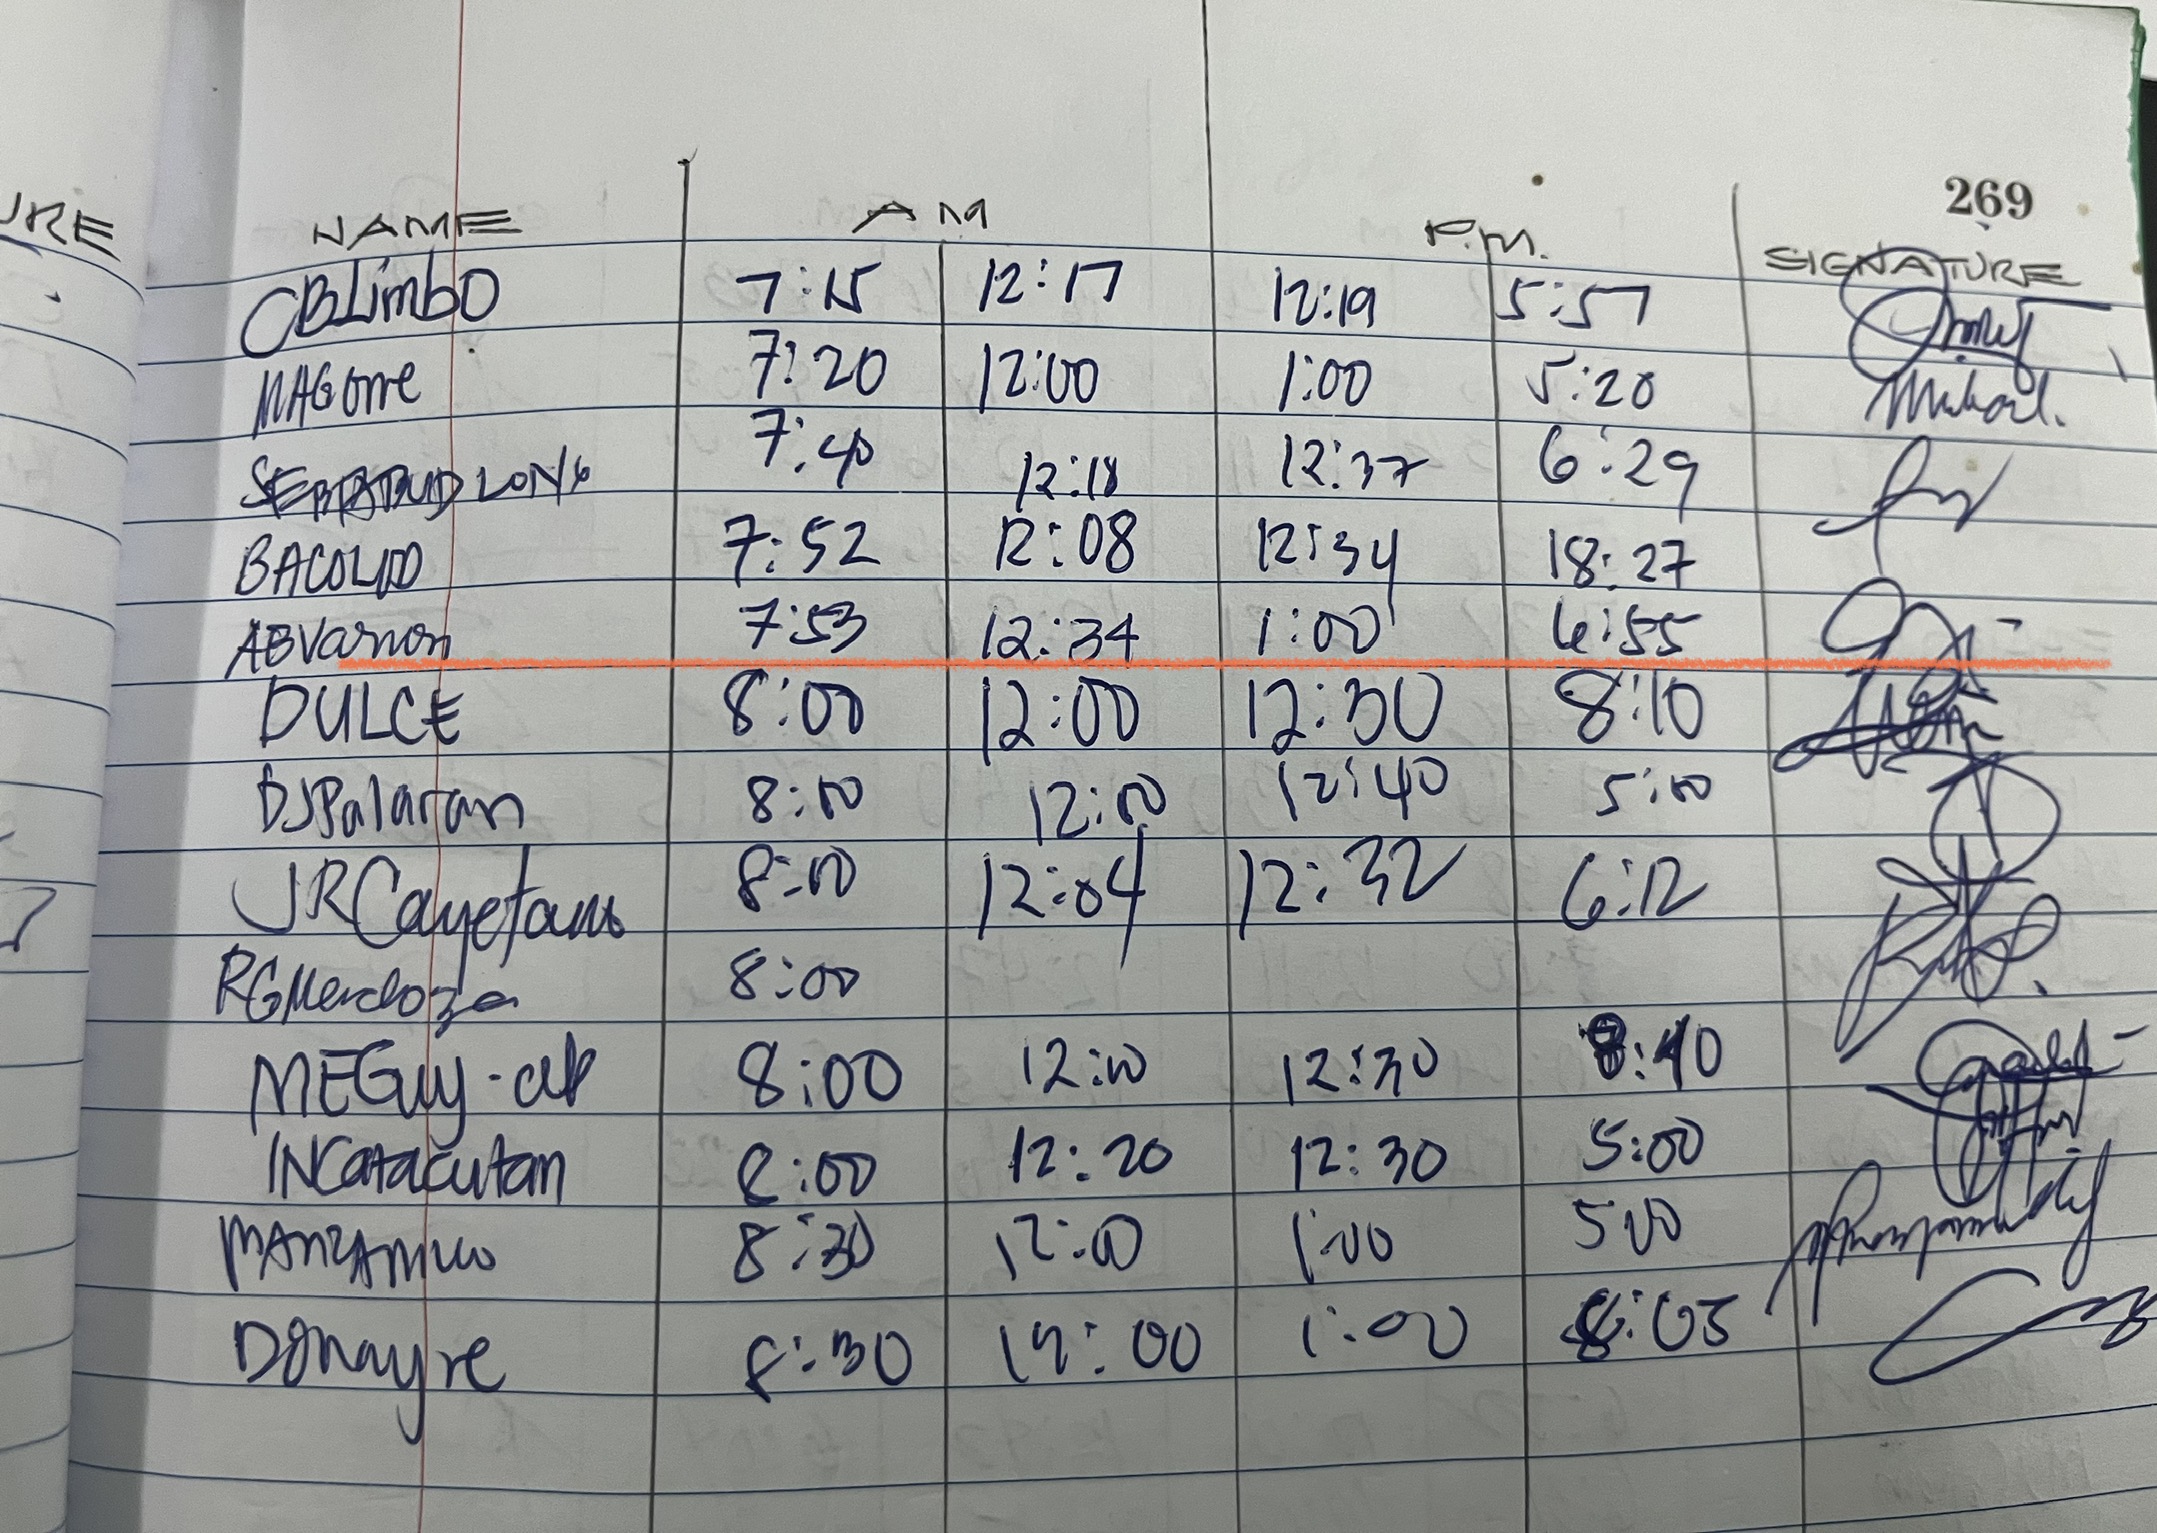 URE
269
NAME AM P.M. SIGNATURE
CBLimbo 7:15 12:17 12:19 5:57
MAGorre 7:20 12:00 1:00 5:20
7:40 12:18 12:37 6:29
BACOLOD 7:52 12:08 12:34 18:27
ABVarron 7:53 12:34 1:00 6:55
DULCE 8:00 12:00 12:30 8:10
DJPalaran 8:00 12:00 12:40 5:00
JRCayetano 8:00 12:04 12:32 6:12
RGMendoza 8:00
MEGuy-ab 8:00 12:00 12:30 8:40
INCatacutan 8:00 12:20 12:30 5:00
8:30 12:00 1:00 500
Donayre 8:30 12:00 1:00 8:05